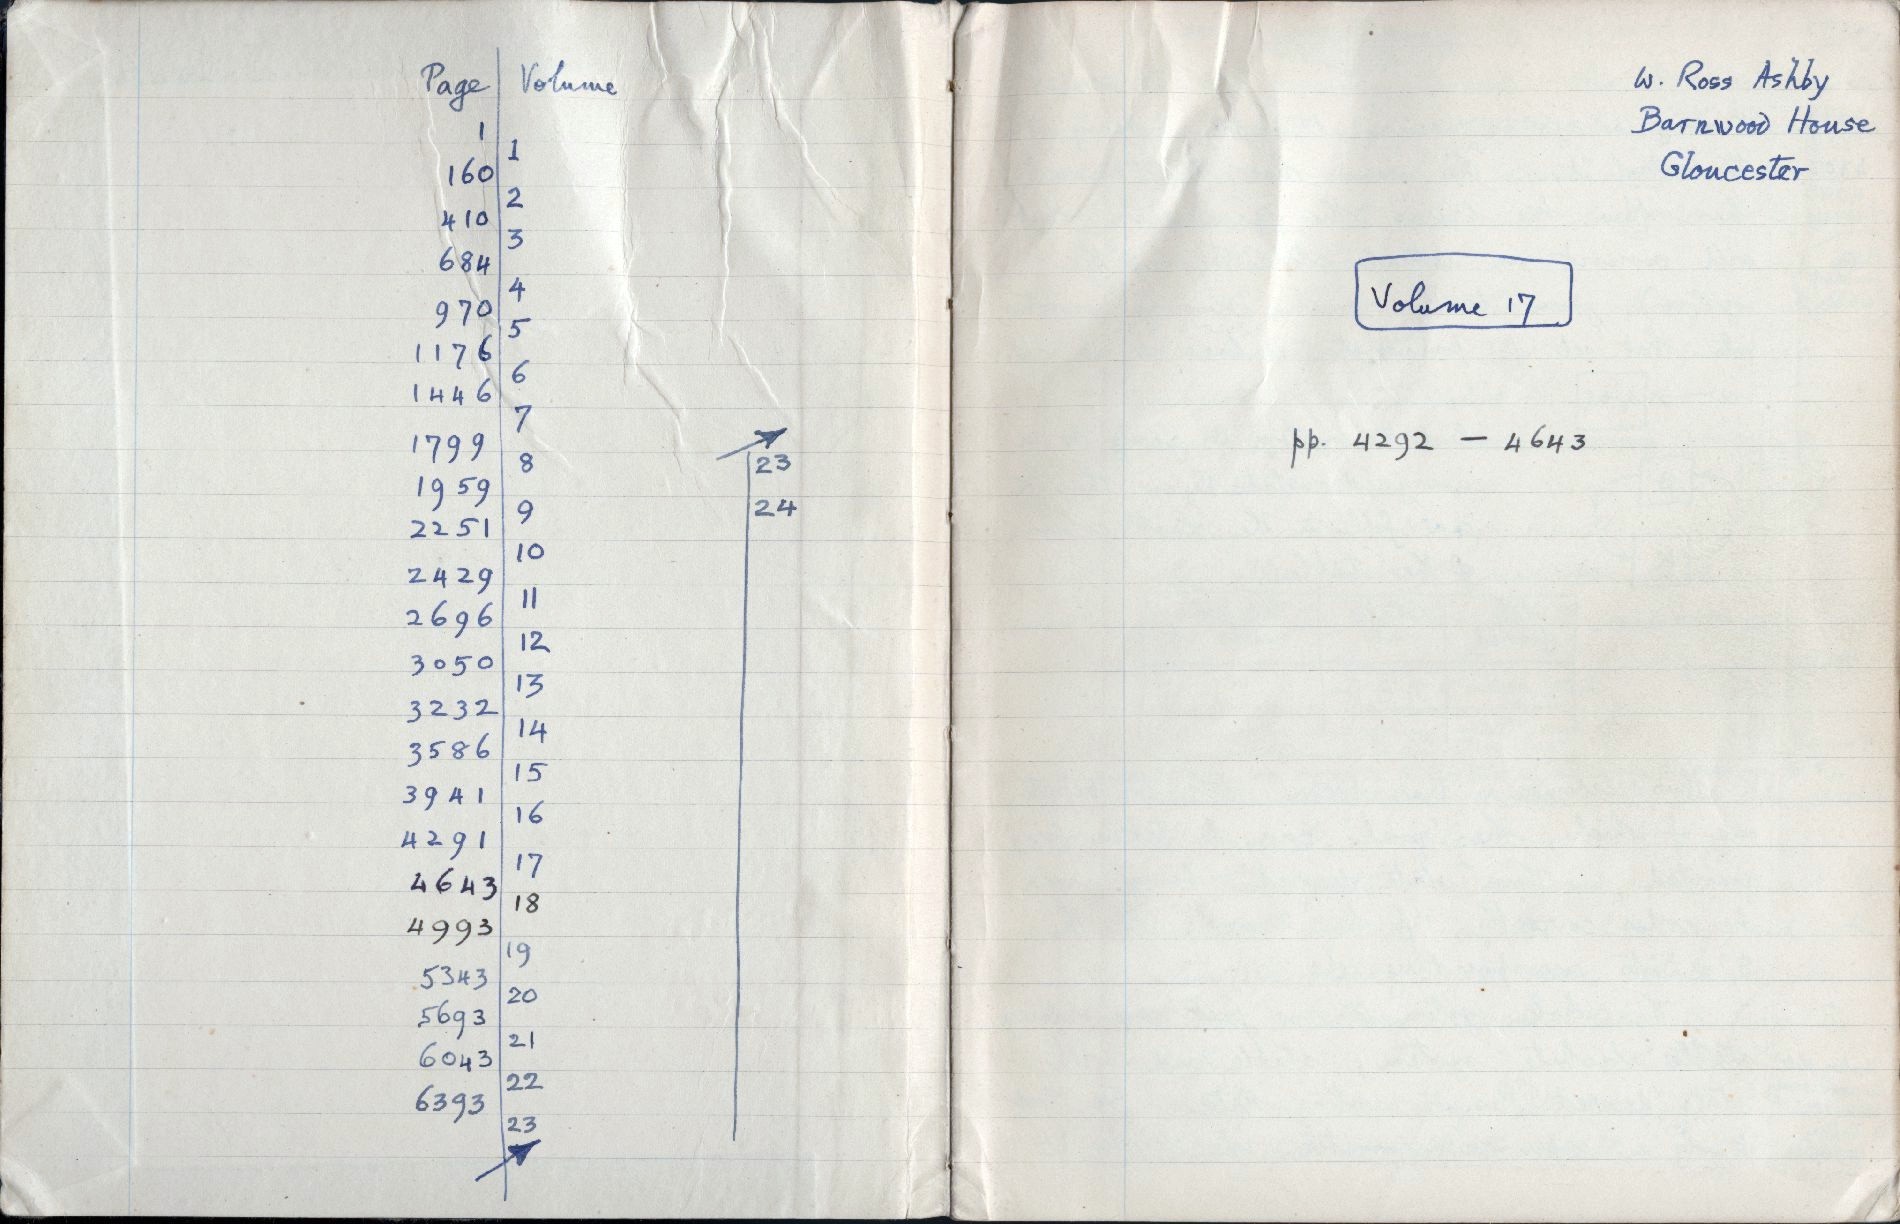 Page Volume
1
1
160
2
410
3
684
4
970
5
1176
6
1446
7
1799
8
1959
9
2251
10
2429
11
2696
12
3050
13
3232
14
3586
15
3941
16
4291
17
4643
18
4993
19
5343
20
5693
21
6043
22
6393
23
23
24
W. Ross Ashby
Barnwood House
Gloucester
Volume 17
pp. 4292 — 4643